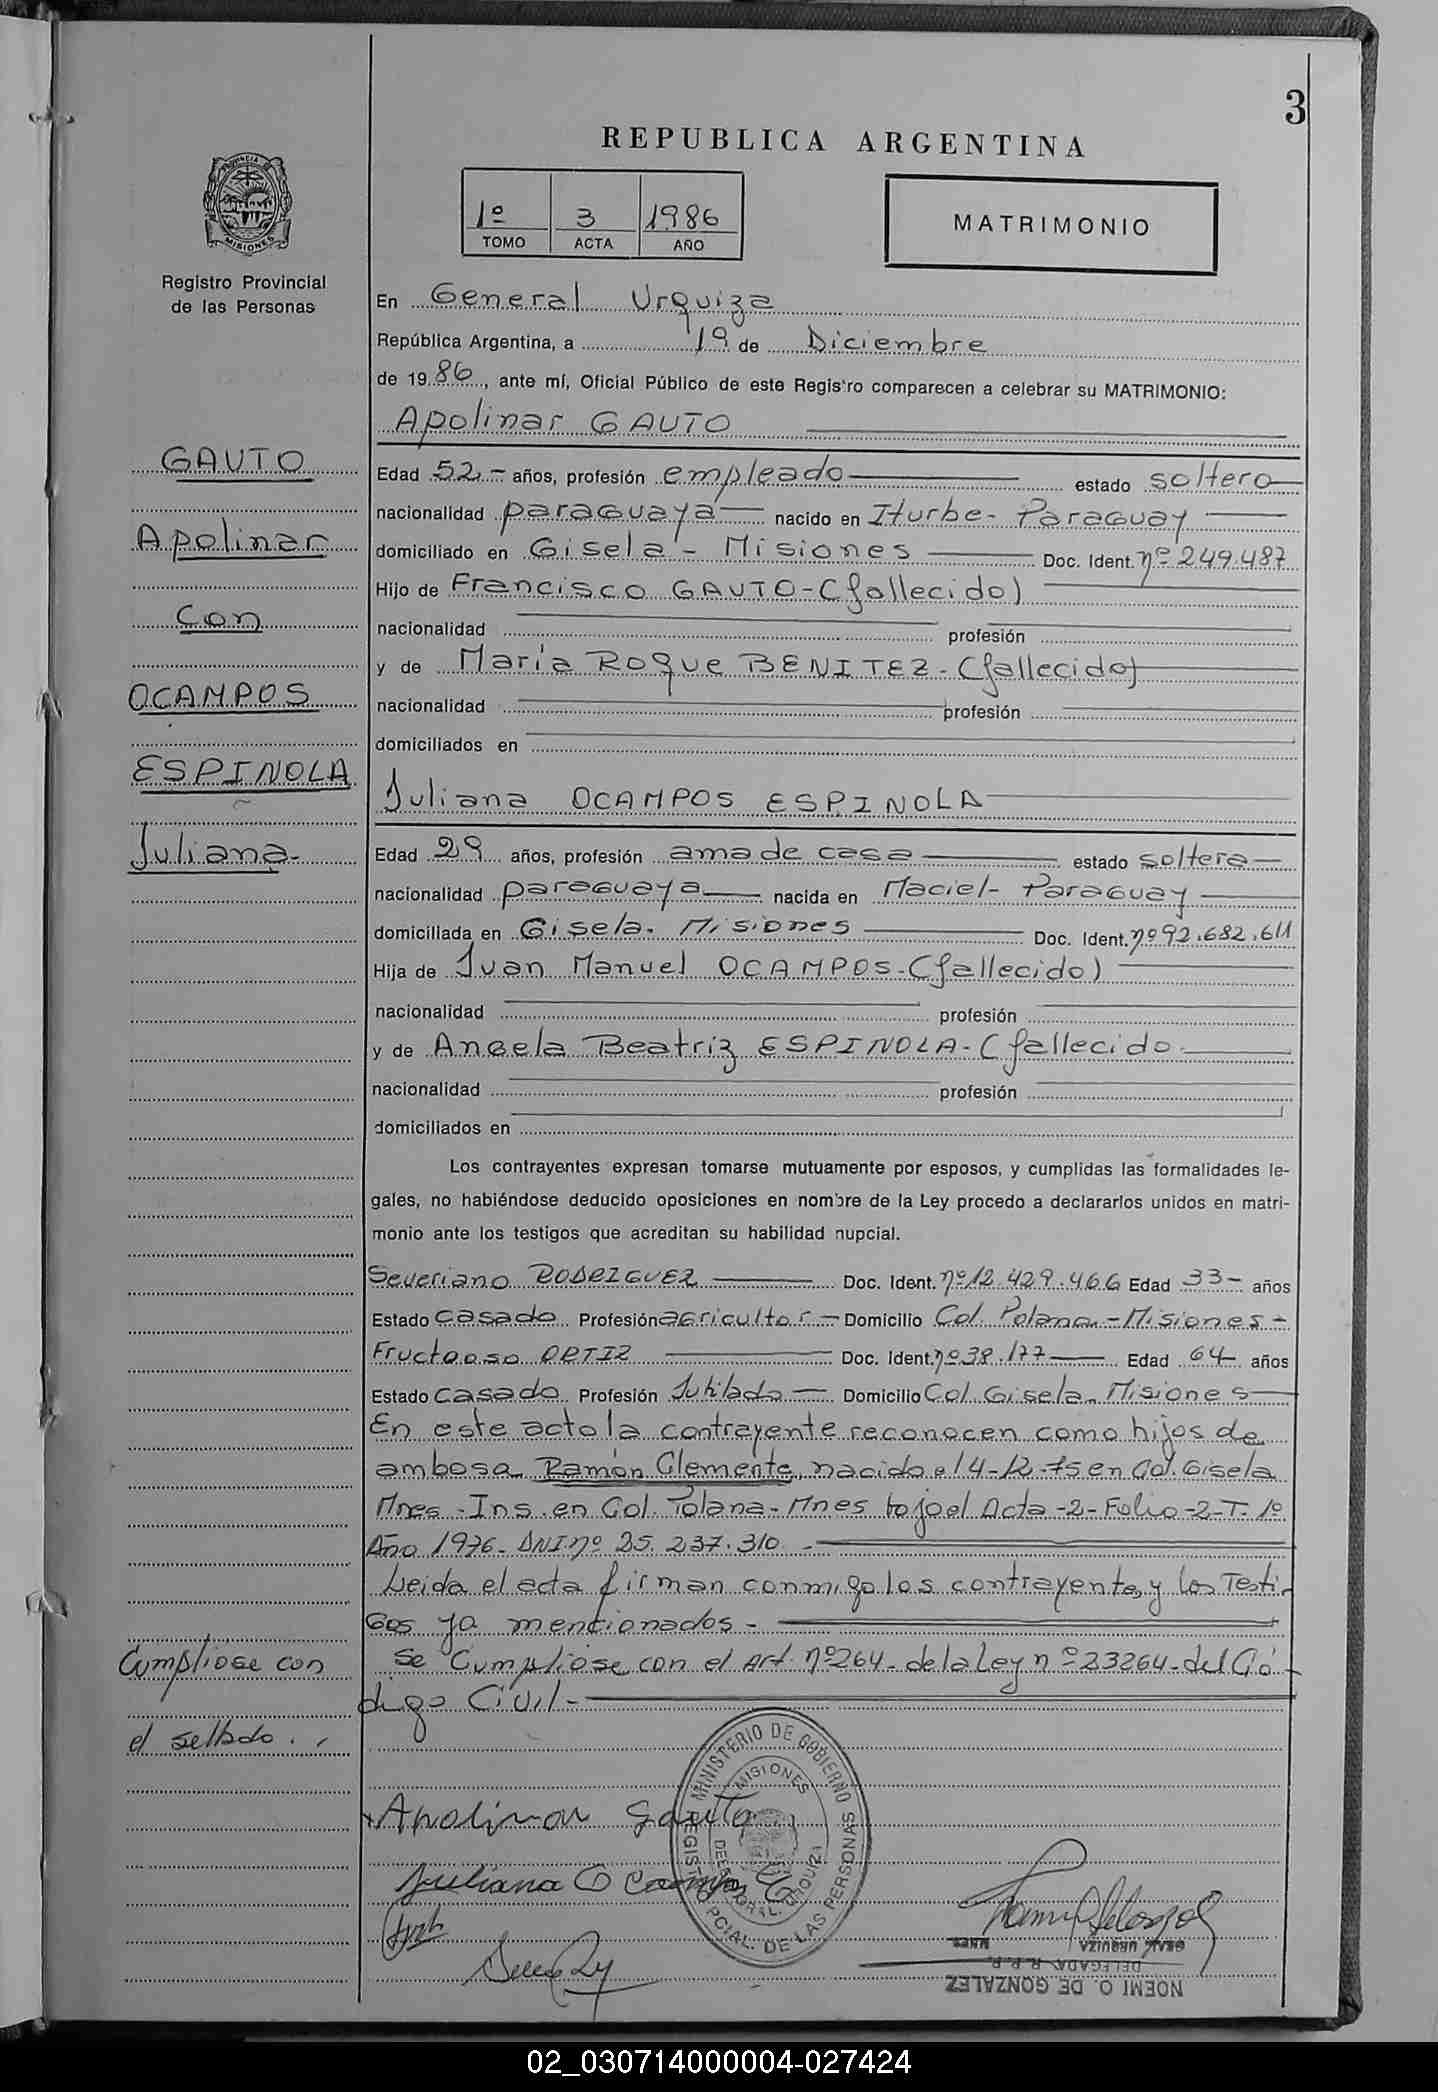 3
REPUBLICA ARGENTINA
1º 3 1986
TOMO ACTA AÑO
MATRIMONIO
PROVINCIA DE
MISIONES
Registro Provincial
de las Personas
En General Urquiza
República Argentina, a 19 de Diciembre
de 1986, ante mí, Oficial Público de este Registro comparecen a celebrar su MATRIMONIO:
Apolinar GAUTO
GAUTO
Apolinar
Con
OCAMPOS
ESPINOLA
Juliana-
Edad 52.- años, profesión empleado estado soltero
nacionalidad paraguaya nacido en Iturbe- Paraguay
domiciliado en Gisela - Misiones Doc. Ident. nº 249.487
Hijo de Francisco GAUTO-(fallecido)
nacionalidad profesión
y de María Roque BENITEZ-(fallecido)
nacionalidad profesión
domiciliados en
Juliana OCAMPOS ESPINOLA
Edad 29 años, profesión ama de casa estado soltera
nacionalidad paraguaya nacida en Maciel- Paraguay
domiciliada en Gisela- Misiones Doc. Ident. nº 92.682.611
Hija de Juan Manuel OCAMPOS-(fallecido)
nacionalidad profesión
y de Angela Beatriz ESPINOLA-(fallecido
nacionalidad profesión
domiciliados en
Los contrayentes expresan tomarse mutuamente por esposos, y cumplidas las formalidades le-
gales, no habiéndose deducido oposiciones en nombre de la Ley procedo a declararlos unidos en matri-
monio ante los testigos que acreditan su habilidad nupcial.
Severiano RODRIGUEZ Doc. Ident. nº 12.429.466 Edad 33- años
Estado casado Profesión agricultor - Domicilio Col. Polana-Misiones-
Fructooso ORTIZ Doc. Ident. nº 38.177 Edad 64 años
Estado casado Profesión Jubilado Domicilio Col. Gisela- Misiones
En este acto la contrayente reconocen como hijos de
ambosa Ramón Clemente, nacido el 4-12-75 en Col. Gisela
Mnes.-Ins. en Col. Polana-Mnes bajo el Acta-2-Folio-2-T.1º
Año 1976- DNI nº 25.237.310.-
Leida el acta firman conmigo los contrayentes y los Testi-
gos ya mencionados-
Se Cumpliose con el Art. nº 264- de la Ley nº 23264- del Có-
digo Civil-
Cumpliose con
el sellado.
Apolinar Gauto
Juliana Ocampos E
MINISTERIO DE GOBIERNO
MISIONES
REGISTRO PCIAL. DE LAS PERSONAS
DELEG. GRAL. URQUIZA
GRAL. URQUIZA MNES.
DELEGADA R.P.P.
NOEMI O. DE GONZALEZ
02_030714000004-027424